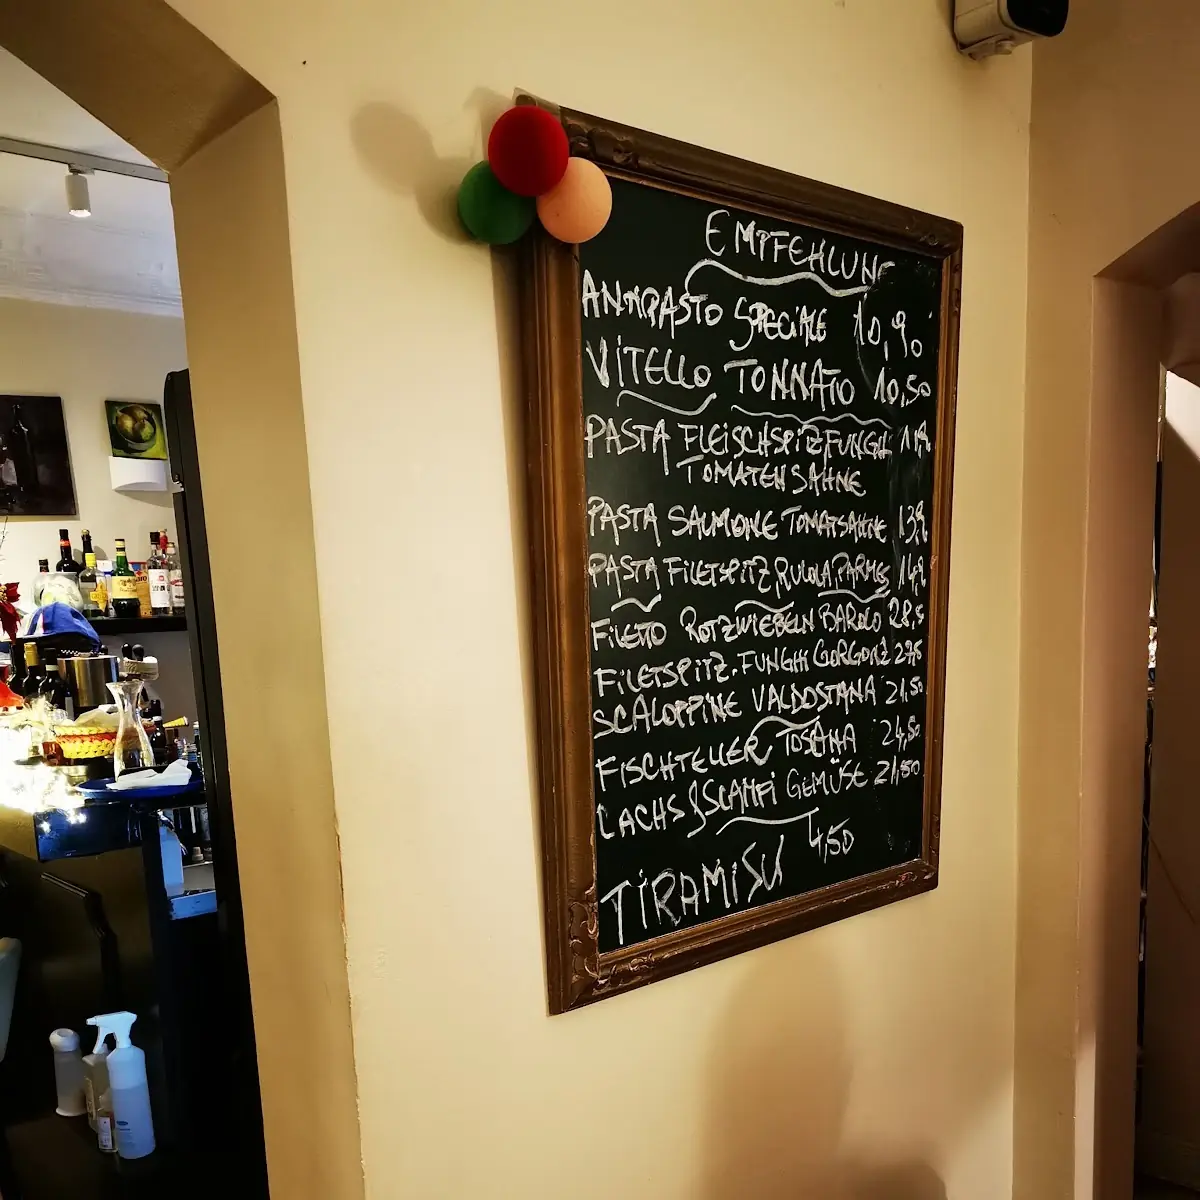 EMPFEHLUNG
ANTIPASTO SPECIALE 10,90
VITELLO TONNATO 10,50
PASTA FLEISCHSPITZ FUNGHI
TOMATENSAHNE
PASTA SALMONE TOMATSAHNE 13,9
PASTA FILETSPITZ RUCOLA PARMES 14,9
FILETTO ROTZWIEBELN BAROLO 28,5
FILETSPITZ. FUNGHI GORGONZ 27,5
SCALOPPINE VALDOSTANA 21,50
FISCHTELLER TOSANA 24,50
LACHS & SCAMPI GEMÜSE 21,50
4,50
TIRAMISU